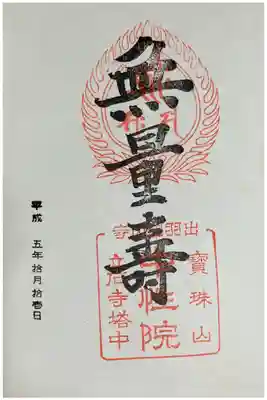 無量壽
寶珠山
性院
立石寺塔中
平成 五年拾月拾壱日